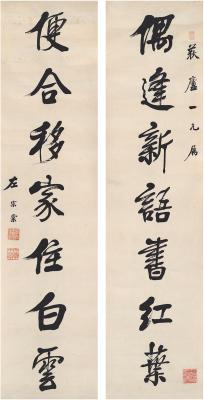 荻廬一兄屬
偶逢新語書紅葉
便合移家住白雲
左宗棠